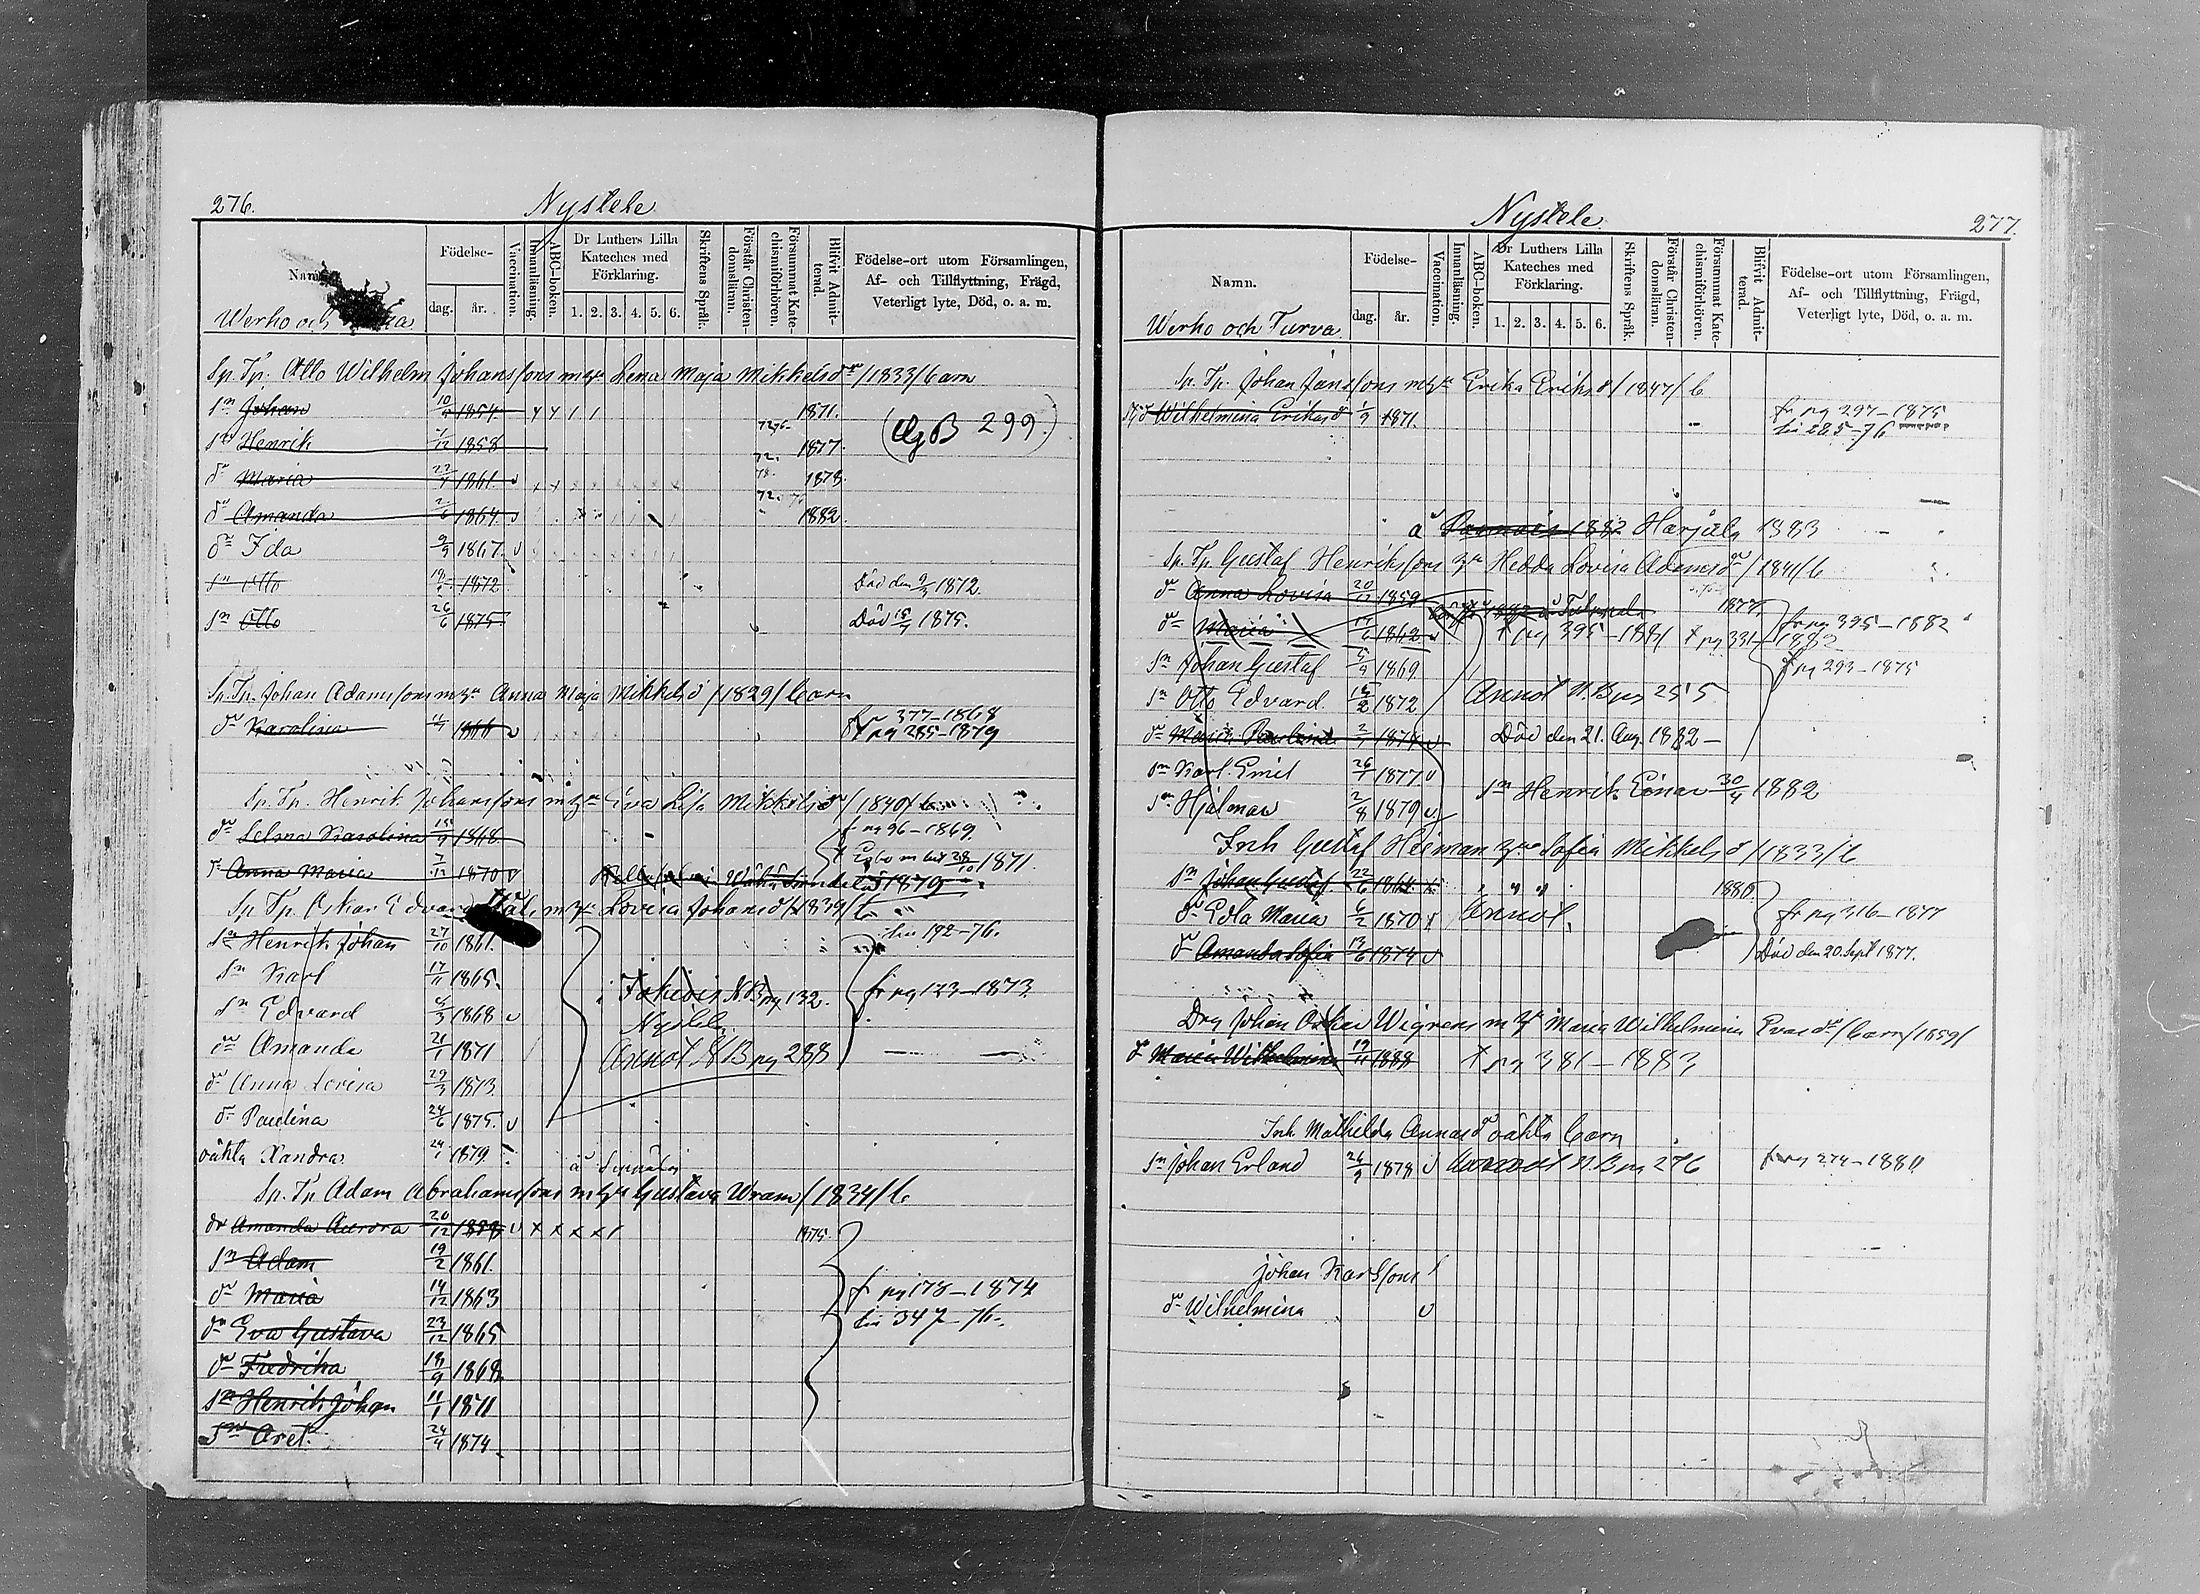 276.
Nystele
Namn.
Födelse-
dag.
år.
Vaccination.
Innanläsning.
ABC-boken.
Dr Luthers Lilla
Kateches med
Förklaring.
1. 2. 3. 4. 5. 6.
Skriftens Språk.
Förstår Christen-
domsläran.
Försummat Kate-
chismiförhören.
Blifvit Admit-
terad.
Födelse-ort utom Församlingen,
Af- och Tillflyttning, Frägd,
Veterligt lyte, Död, o. a. m.
Werho och
Sp. Tp. Otto Wilhelm Johanssons m hu Lena Maja Mikkelsdr /1833/ barn
sn Johan 1854 1871.
sn Henrik 1858 1877.
(Ny B 299.)
dr Maria 1861. 1878.
dr Amanda 1864 1882.
dr Ida 1867.
sn Otto 1872 Död den 1872.
sn Otto 26/6 1875 Död 1875.
Sp. Tp. Johan Adamssons m hu Anna Maja Mikkelsd /1829/ barn
dr Karolina 1866 fr 377-1868
pg 285-1879
Sp. Tp. Henrik Johanssons m hu Eva Lisa Mikkelsdr /1840/ b
dr Selma Karolina 1868 fr pg 96-1869.
dr Anna Maria 7/12 1870 1871.
1879
Sp. Tp. Oskar Edvard m hu Lovisa Johansd /1839/ b
sn Henrik Johan 27/10 1861. till 192-76.
sn Karl 17/11 1865.
Jokiois N.B pg 132. fr pg 123-1873
sn Edvard 1868
Nystele
dr Amanda 21/1 1871
Annot NB pg 288
dr Anna Lovisa 29/3 1873.
dr Paulina 24/6 1875.
oäkta Xandra 1879
Sp. Tp Adam Abrahamssons m hu Gustava Wram /1834/ b
dr Amanda Aurora 20/12 1858 1875.
sn Adam 19/2 1861.
dr Maria 14/12 1863
fr pg 178-1874
till 347-76.
dr Eva Gustava 23/12 1865
dr Fredrika 19/9 1868
sn Henrik Johan 11/1 1871
sn Axel. 24/4 1874
Nystele
277.
Namn.
Födelse-
dag.
år.
Vaccination.
Innanläsning.
ABC-boken.
Dr Luthers Lilla
Kateches med
Förklaring.
1. 2. 3. 4. 5. 6.
Skriftens Språk.
Förstår Christen-
domsläran.
Försummat Kate-
chismiförhören.
Blifvit Admit-
terad.
Födelse-ort utom Församlingen,
Af- och Tillflyttning, Frägd,
Veterligt lyte, Död, o. a. m.
Werho och Turva.
Sp. Tp. Johan Janssons m hu Erika Eriksd /1847/ b.
Wilhelmina Erikasd 1/9 1871. fr pg 297-1875
till 285-76
å 1882 Harjula 1883
Sp. Tp. Gustaf Henrikssons hu Hedda Lovisa Adamsdr /1841/ b
dr Anna Lovisa 1859 1877
dr Maria 1862 pg 395-1881 pg 331-1882
fr pg 395-1882
sn Johan Gustaf 1869. pg 293-1875
sn Otto Edvard. 1872 Annot N.B pg 255
dr Maria Paulina 1874 Död den 21. Aug. 1882-
sn Karl Emil 26/1 1877.
sn Henrik Einar 30/4 1882
sn Hjalmar 2/8 1879
Inh Gustaf Heiman hu Sofia Mikkelsd /1833/ b
sn Johan Gustaf 22/6 1864 1880
dr Edla Maria 6/2 1870 Annot. fr pg 316-1877
dr Amanda Sofia 13/6 1874 Död den 20. Sept 1877.
Drg Johan Oskar Wigrens m hu Maria Wilhelmina Evasdr / barn /1859/
dr Maria Wilhelmina pg 381-1883
Inh. Mathilda Annasd oäkta barn
sn Johan Erland 1878 Annot N.B pg 276 fr pg 274-1880
Johan Karlssons
dr Wilhelmina